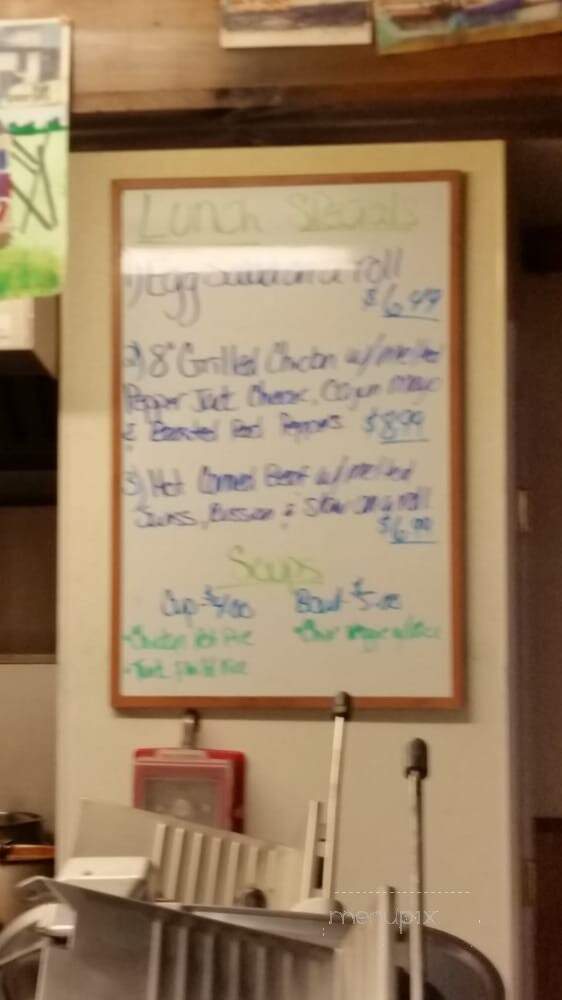 Lunch Specials
1) Egg Salad on a roll
$6.99
2) 8" Grilled Chicken w/melted
Pepper Jack Cheese, Cajun mayo
& Roasted Red Peppers $8.99
3) Hot Corned Beef w/melted
Swiss, Russian & Slaw on a roll
$6.99
Soups
Cup-$4.00 Bowl-$5.00
-Chicken Pot Pie
menupix